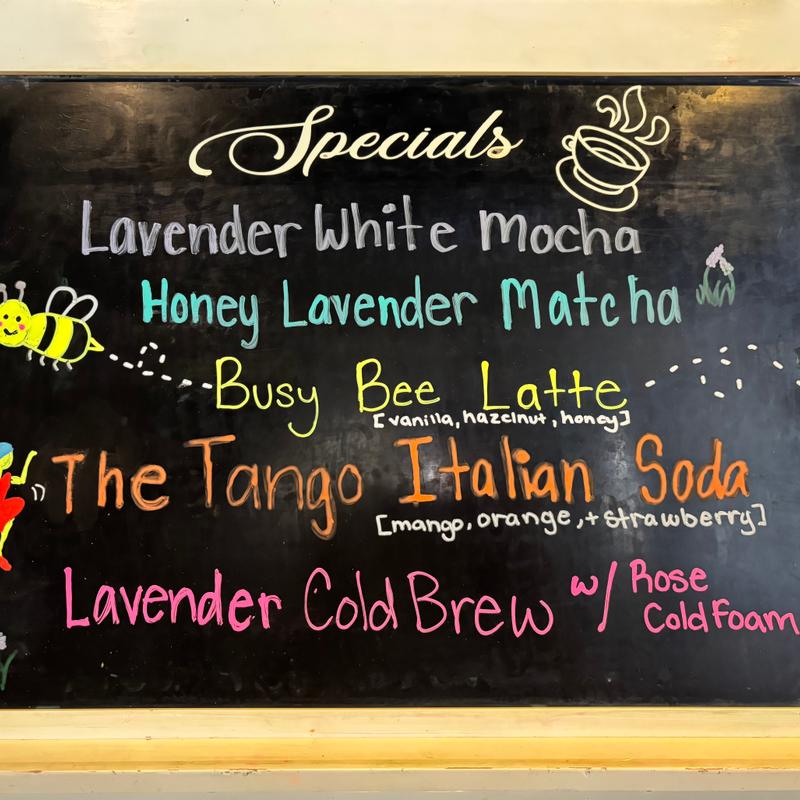 Specials
Lavender White Mocha
Honey Lavender Matcha
Busy Bee Latte
[vanilla, hazelnut, honey]
The Tango Italian Soda
[mango, orange, + strawberry]
Lavender Cold Brew w/ Rose
Cold Foam